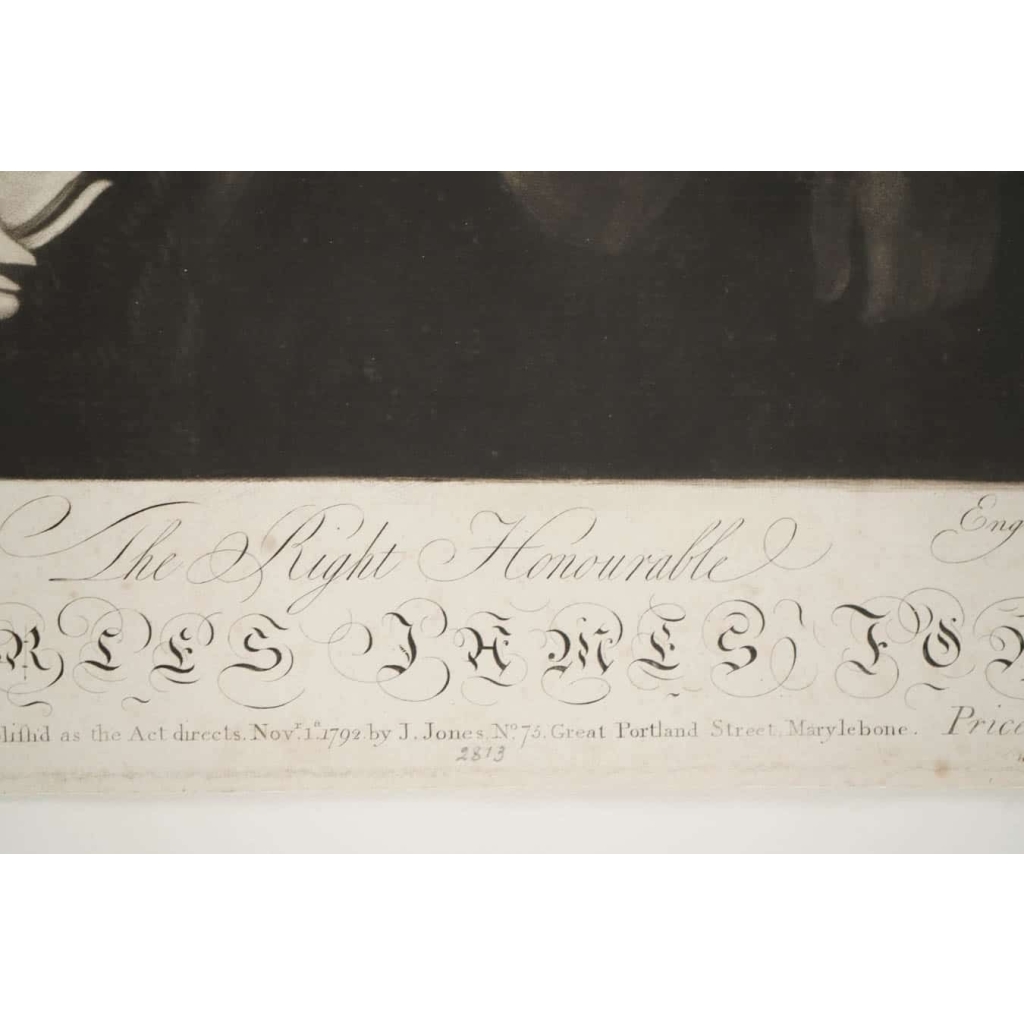 The Right Honourable
Eng
RLES JAMES FOX
lish'd as the Act directs. Novr. 1st. 1792. by J. Jones, No. 75. Great Portland Street, Marylebone.
Price
2813